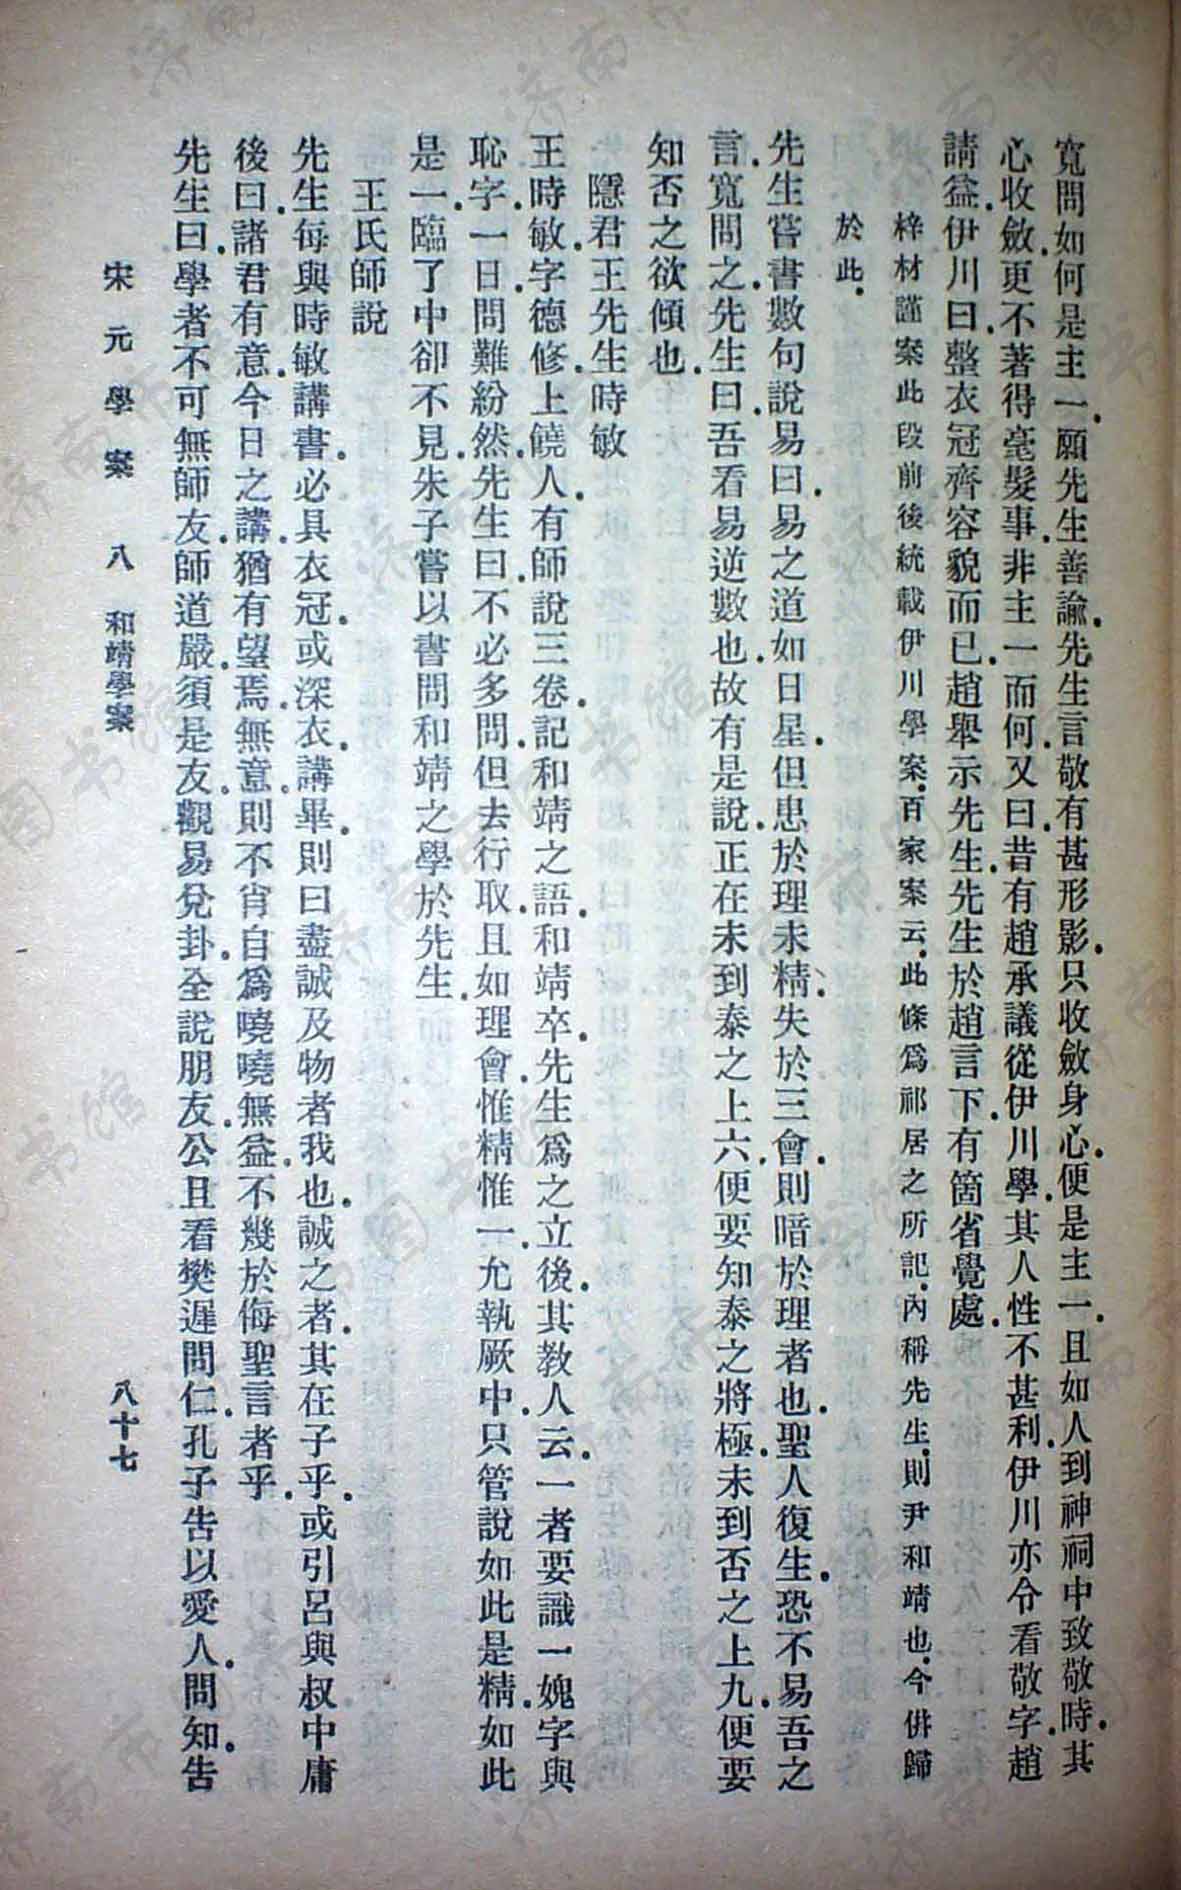 寬問如何是主一．願先生善諭．先生言敬有甚形影．只收斂身心．便是主一．且如人到神祠中致敬時．其
心收斂．更不著得毫髮事．非主一而何．又曰．昔有趙承議從伊川學．其人性不甚利．伊川亦令看敬字．趙
請益．伊川曰．整衣冠齊容貌而已．趙舉示先生．先生於趙言下．有箇省覺處．
梓材謹案此段前後統載伊川學案．百家案云．此條爲祁居之所記．內稱先生．則尹和靖也．今倂歸
於此．
先生嘗書數句說易曰．易之道如日星．但患於理未精．失於三會．則暗於理者也．聖人復生．恐不易吾之
言．寬問之．先生曰．吾看易逆數也．故有是說．正在未到泰之上六．便要知泰之將極．未到否之上九．便要
知否之欲傾也．
隱君王先生時敏
王時敏．字德修．上饒人．有師說三卷．記和靖之語．和靖卒．先生爲之立後．其教人云．一者要識一媿字與
恥字．一日問難紛然．先生曰．不必多問．但去行取．且如理會．惟精惟一．允執厥中．只管說如此是精．如此
是一．臨了中卻不見．朱子嘗以書問和靖之學於先生．
王氏師說
先生每與時敏講書．必具衣冠．或深衣．講畢．則曰盡誠及物者我也．誠之者．其在子乎．或引呂與叔中庸
後曰．諸君有意．今日之講．猶有望焉．無意．則不肖自爲嘵嘵無益．不幾於侮聖言者乎．
先生曰．學者不可無師友．師道嚴．須是友．觀易兌卦．全說朋友．公且看樊遲問仁．孔子告以愛人．問知．告
宋元學案　八　和靖學案　八十七
济南市图书馆